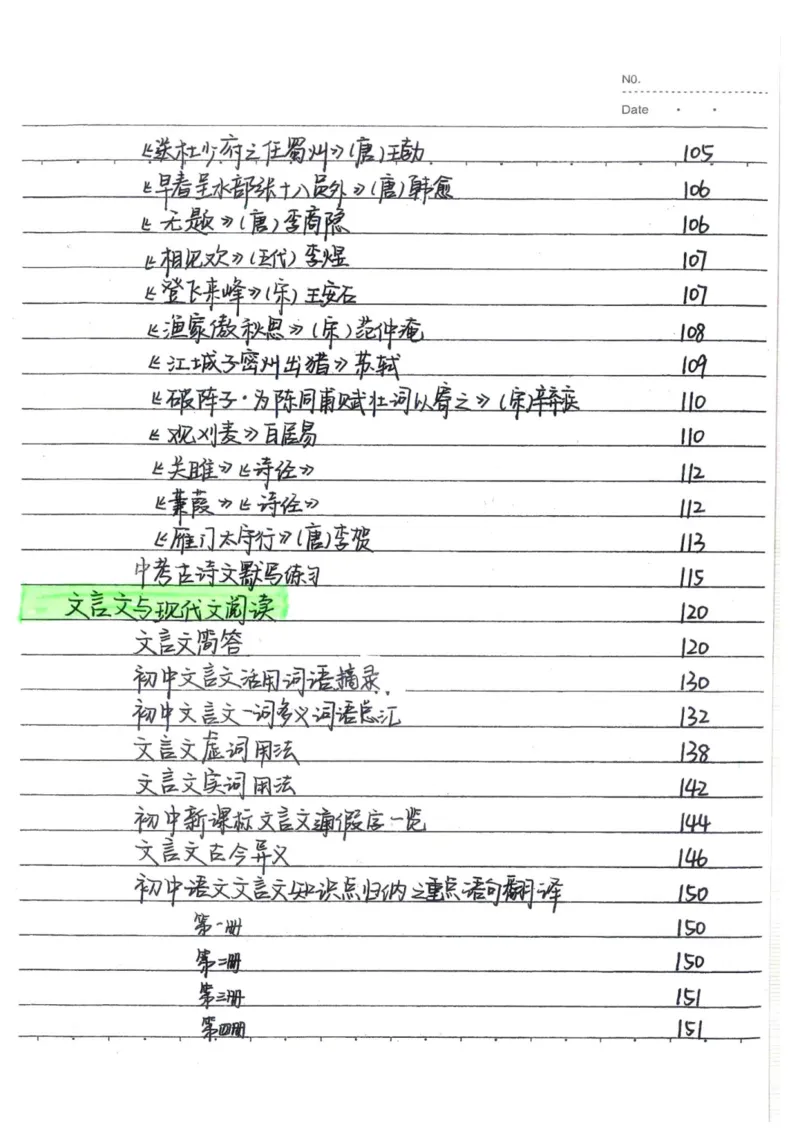 NO.
Date
《送杜少府之任蜀州》(唐)王勃 105
《早春呈水部张十八员外》(唐)韩愈 106
《无题》(唐)李商隐 106
《相见欢》(五代)李煜 107
《登飞来峰》(宋)王安石 107
《渔家傲秋思》(宋)范仲淹 108
《江城子密州出猎》苏轼 109
《破阵子·为陈同甫赋壮词以寄之》(宋)辛弃疾 110
《观刈麦》白居易 110
《关雎》《诗经》 112
《蒹葭》《诗经》 112
《雁门太守行》(唐)李贺 113
中考古诗文默写练习 115
文言文与现代文阅读 120
文言文简答 120
初中文言文活用词语摘录 130
初中文言文一词多义词语总汇 132
文言文虚词用法 138
文言文实词用法 142
初中新课标文言文通假字一览 144
文言文古今异义 146
初中语文文言文知识点归纳之重点语句翻译 150
第一册 150
第二册 150
第三册 151
第四册 151